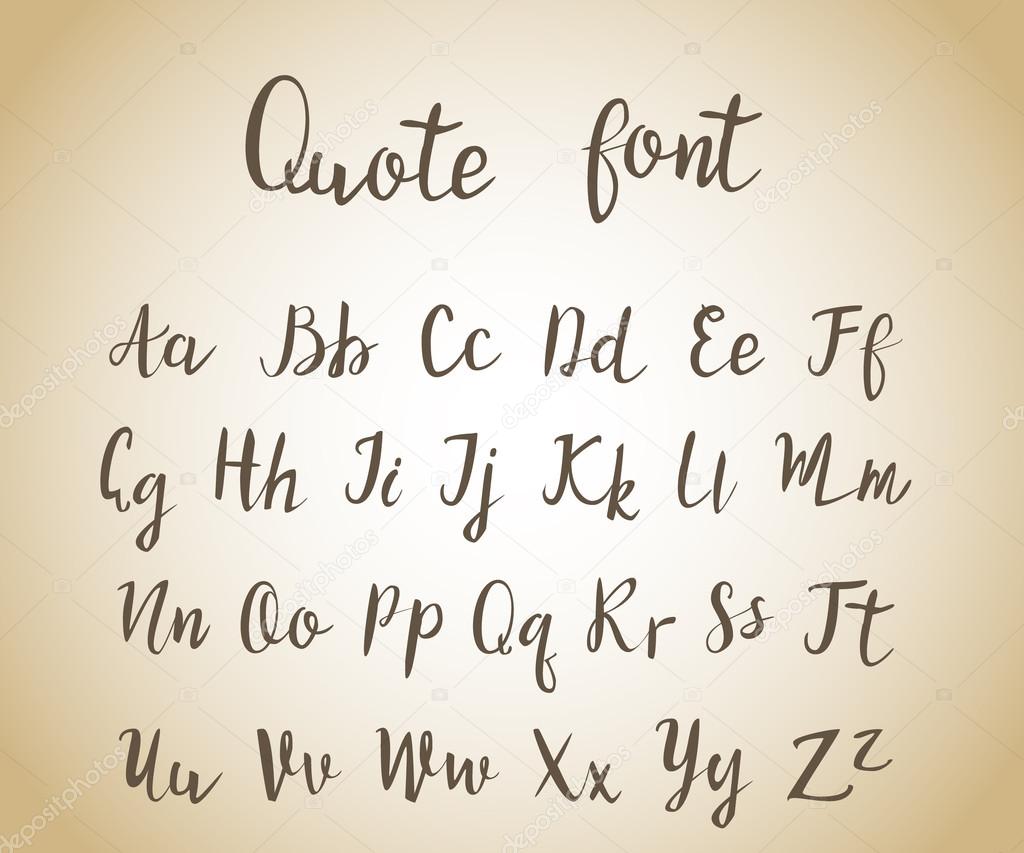 Quote font
Aa Bb Cc Dd Ee Ff
Gg Hh Ii Jj Kk Ll Mm
Nn Oo Pp Qq Rr Ss Tt
Uu Vv Ww Xx Yy Zz
depositphotos